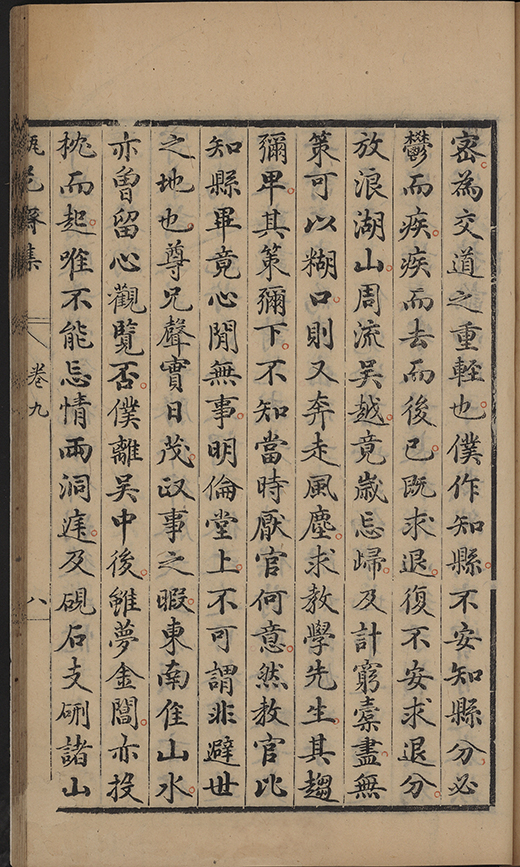 密為交道之重輕也僕作知縣不安知縣分必
鬱而疾疾而去而後已既求退復不安求退分
放浪湖山周流吳越竟歲忘歸及計窮橐盡無
策可以糊口則又奔走風塵求教學先生其趨
彌卑其策彌下不知當時厭官何意然教官比
知縣畢竟心閒無事明倫堂上不可謂非避世
之地也尊兄聲實日茂政事之暇東南佳山水
亦曾留心觀覽否僕離吳中後雖夢金閶亦投
枕而起唯不能忘情兩洞庭及硯石支硎諸山
瓶花齋集
卷九
八